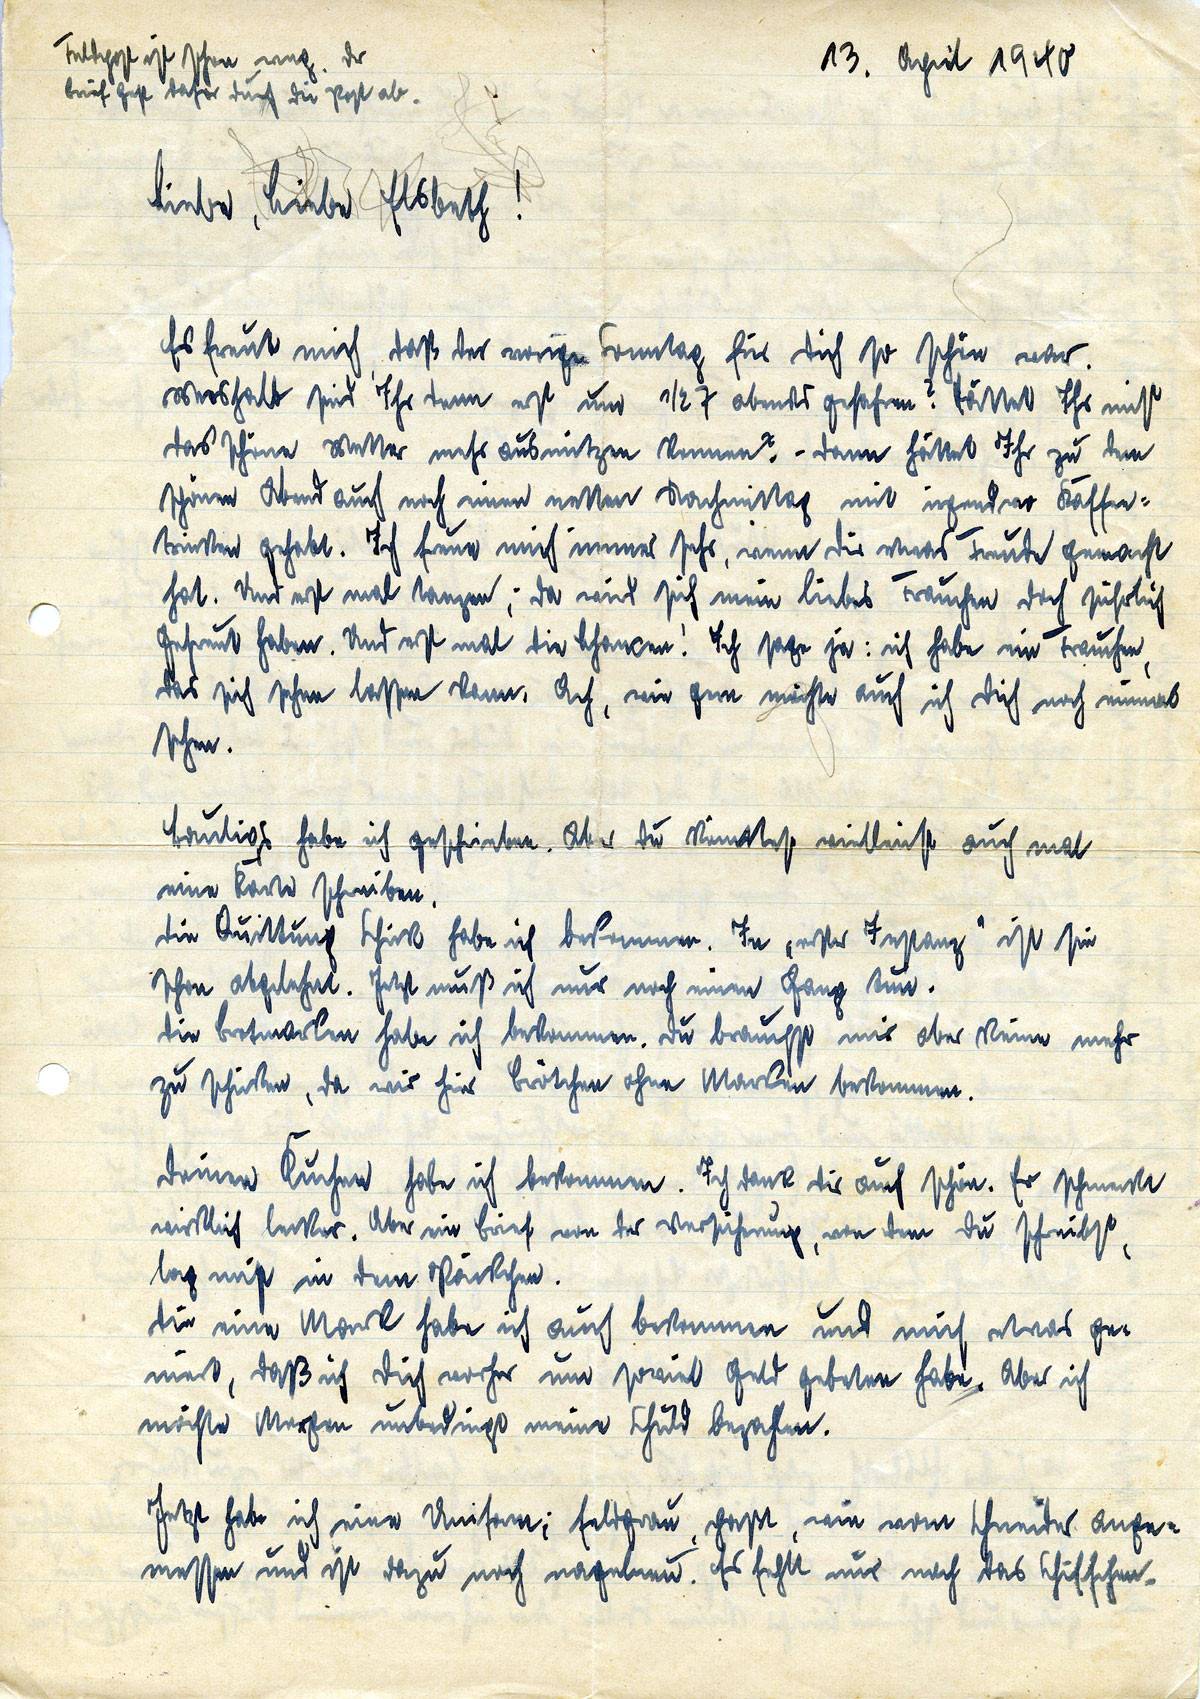 Feldpost ist schon weg. Der
Brief geht dafür durch die Post ab.
13. April 1940
Liebe, liebe Elsbeth!
Es freut mich, daß der vorige Sonntag für Dich so schön war.
Weshalb seid Ihr denn erst um 1/2 7 abends gefahren? Hättet Ihr nicht
das schöne Wetter mehr ausnützen können? - dann hättet Ihr zu dem
schönen Abend auch noch einen netten Nachmittag mit irgendwo Kaffee-
trinken gehabt. Ich freue mich immer sehr, wenn Dir etwas Freude gemacht
hat. Und erst mal tanzen; da wird sich mein liebes Frauchen doch sicherlich
gefreut haben. Und erst mal die Chancen! Ich sage ja: ich habe ein Frauchen,
das sich sehen lassen kann. Ach, wie gern möchte auch ich Dich noch einmal
sehen.
habe ich geschrieben. Aber Du könntest vielleicht auch mal
eine Karte schreiben.
Die Quittung habe ich bekommen. In „erster Instanz" ist sie
schon abgelehnt. Jetzt muß ich nur noch einen Gang tun.
Die Brotmarken habe ich bekommen. Du brauchst mir aber keine mehr
zu schicken, da wir hier Brötchen ohne Marken bekommen.
Deinen Kuchen habe ich bekommen. Ich dank Dir auch schön. Er schmeckt
wirklich lecker. Aber ein Brief von der Versicherung, von dem Du schreibst,
lag nicht in dem Päckchen.
Die eine Mark habe ich auch bekommen und mich etwas ge-
niert, daß ich Dich vorher um soviel Geld gebeten habe. Aber ich
möchte Morgen unbedingt meine Schuld bezahlen.
Jetzt habe ich eine Uniform; feldgrau, paßt, wie vom Schneider ange-
messen und ist dazu noch nagelneu. Es fehlt nur noch das Schiffchen.